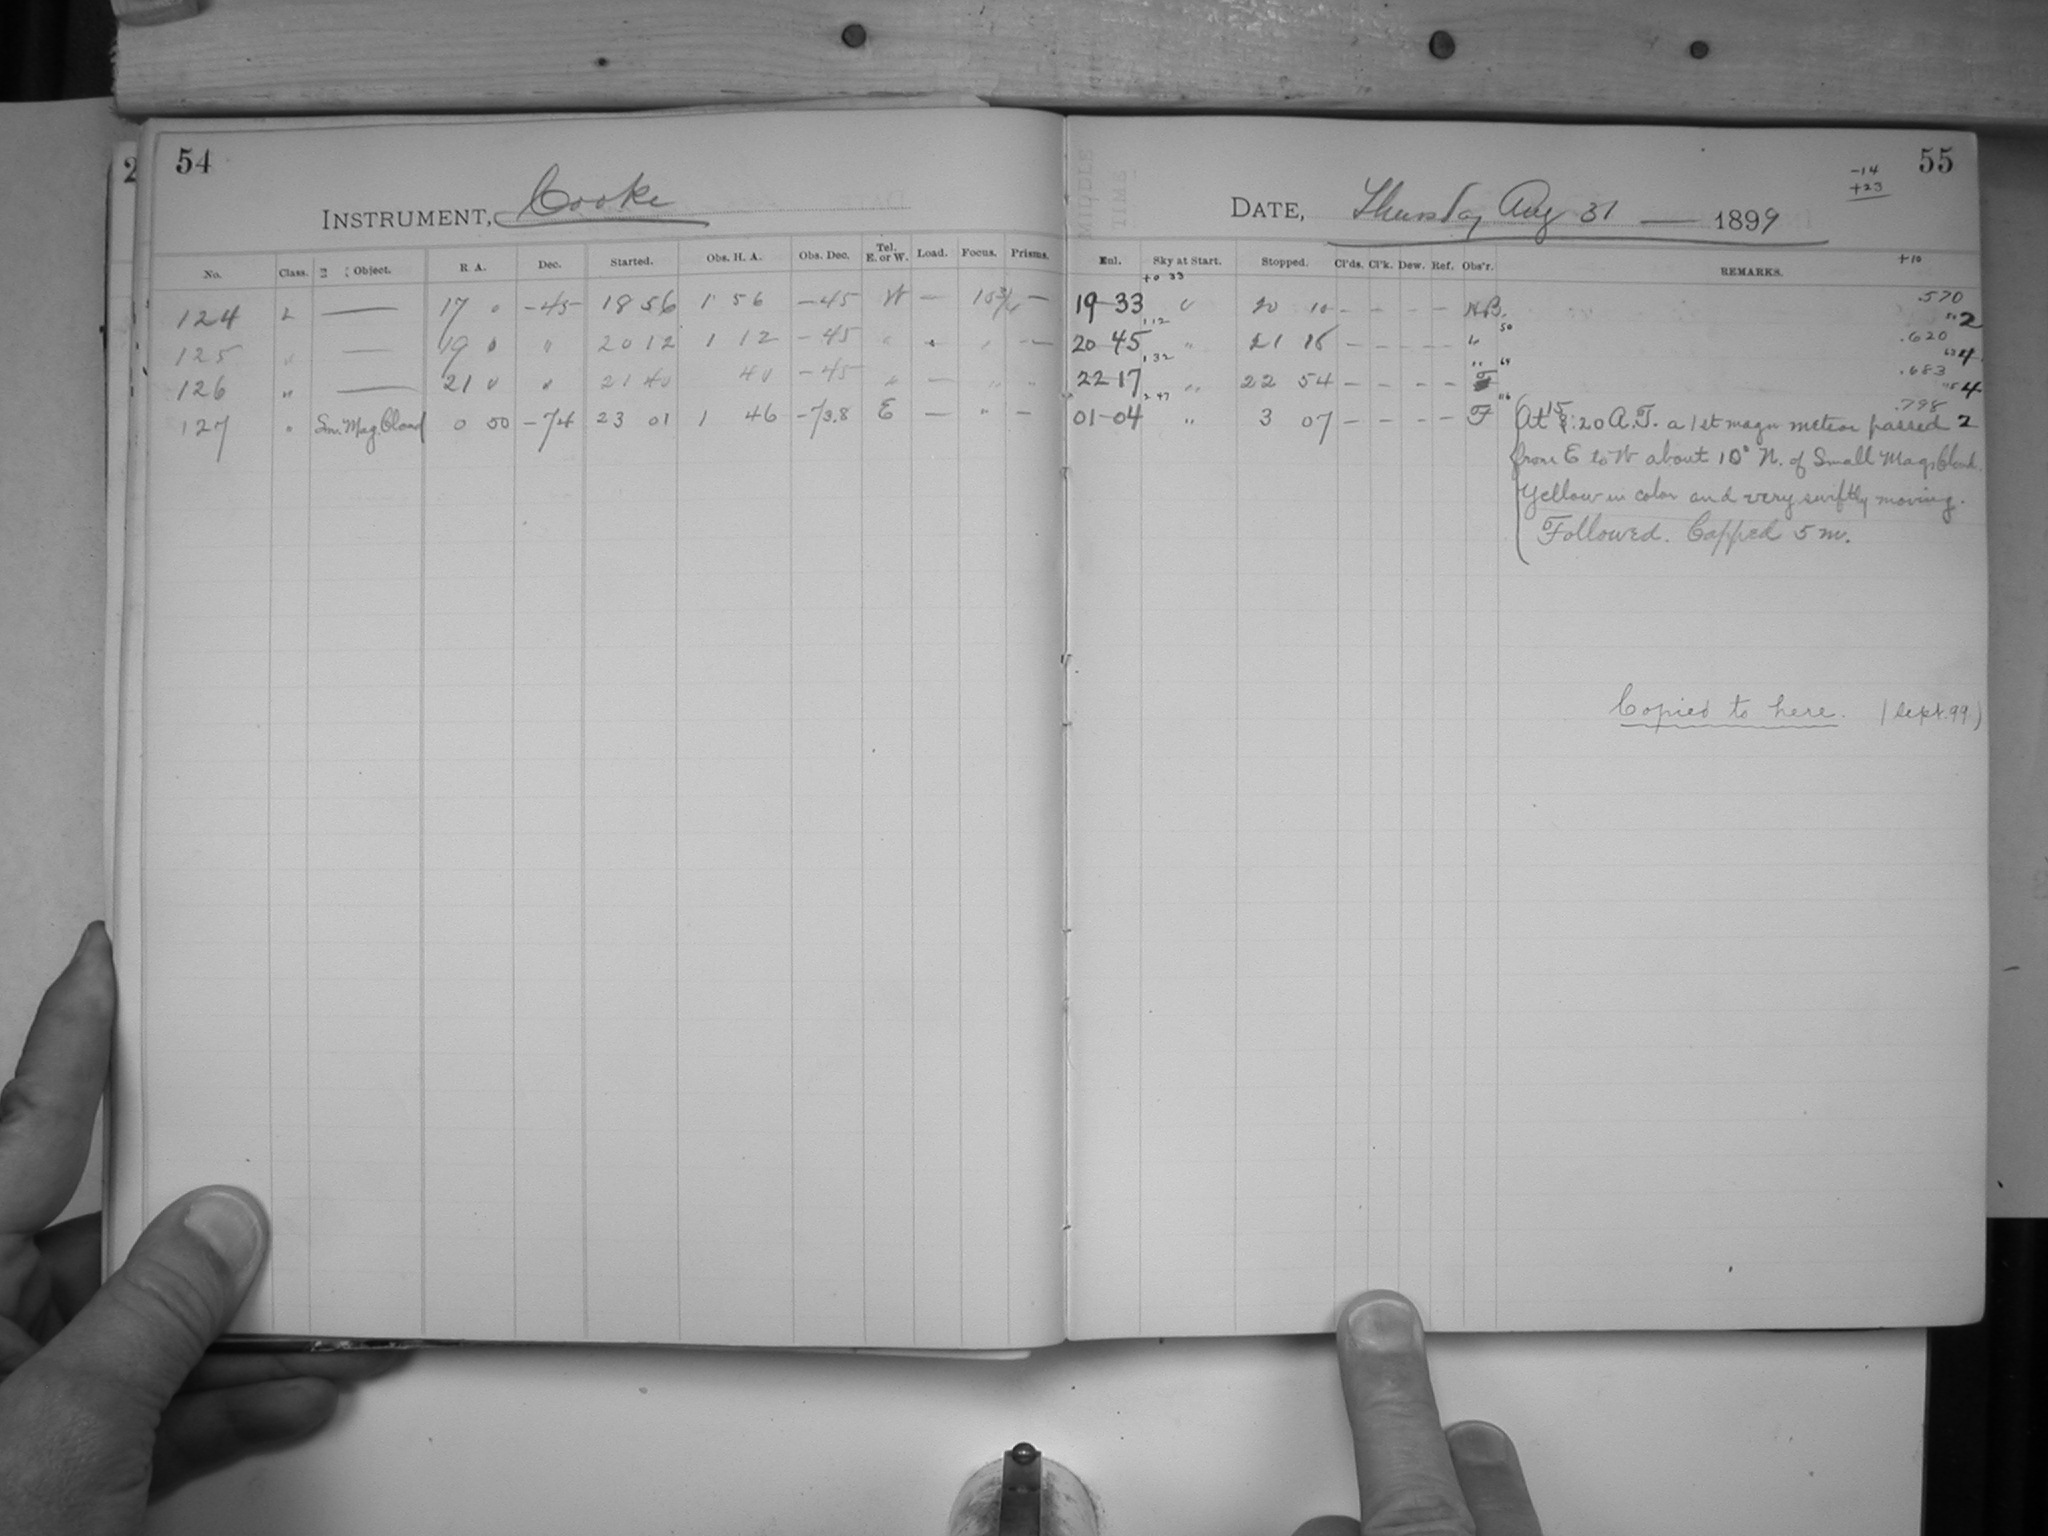 54
INSTRUMENT, Cooke
No. Class. Object. R. A. Dec. Started. Obs. H. A. Obs. Dec. Tel. E. or W. Load. Focus. Prisms.
124 L — 17 0 -45 18 56 1 56 -45 W —
125 " — 19 0 " 20 12 1 12 -45 "
126 " — 21 0 " 21 40 40 -45 " — " "
127 " Sm. Mag. Cloud 0 50 -74 23 01 1 46 -73.8 E — " —
2
55
-14
+23
DATE, Thursday Aug 31 — 1899
MIDDLE TIME
Enl. Sky at Start. Stopped. Cl'ds. Cl'k. Dew. Ref. Obs'r. REMARKS. +10
+0 33
19-33 20 10 - - - - H.B. .570
2
1 12 50
20-45 " 21 18 - - - - " .620
4
1 32 " 64
22-17 " 22 54 - - - - F .683
4
2 47 116
01-04 " 3 07 - - - - F .798
At 15:20 A.T. a 1st magn meteor passed 2
from E to W about 10° N. of Small Mag. Cloud.
Yellow in color and very swiftly moving.
Followed. Capped 5 m.
Copied to here. (Sept. 99)